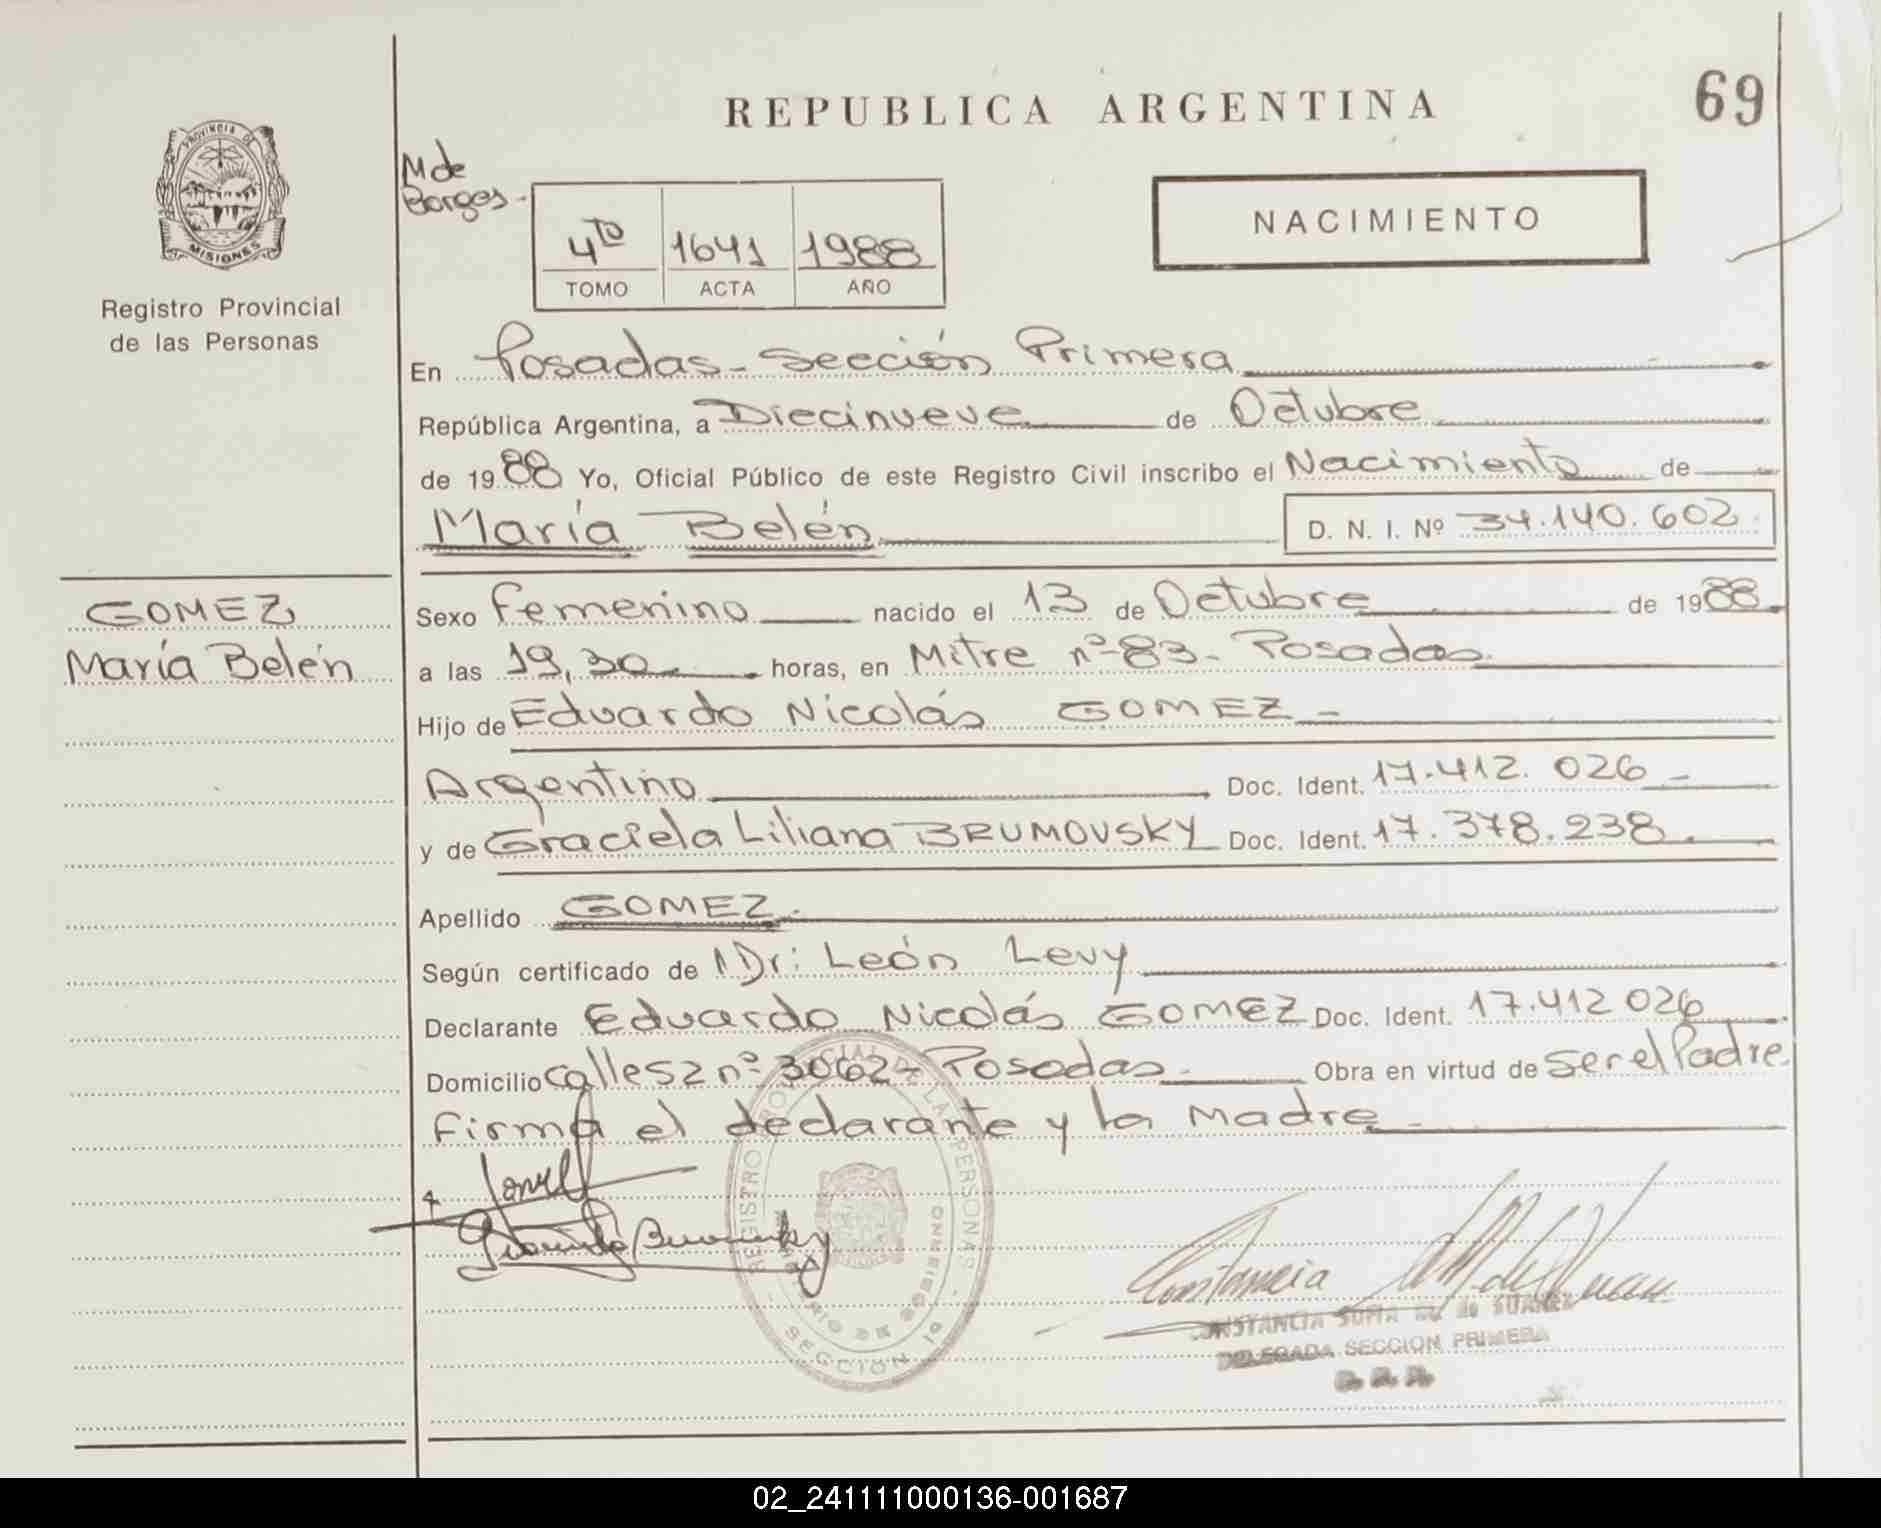 69
REPUBLICA ARGENTINA
PROVINCIA DE
MISIONES
Registro Provincial
de las Personas
M de
Borges -
4to 1641 1988
TOMO ACTA AÑO
NACIMIENTO
En Posadas - Sección Primera
República Argentina, a Diecinueve de Octubre
de 1988 Yo, Oficial Público de este Registro Civil inscribo el Nacimiento de
María Belén D. N. I. Nº 34.140.602
GOMEZ
María Belén
Sexo Femenino nacido el 13 de Octubre de 1988
a las 19,30 horas, en Mitre nº 83 - Posadas
Hijo de Eduardo Nicolás GOMEZ -
Argentino Doc. Ident. 17.412.026 -
y de Graciela Liliana BRUMOVSKY Doc. Ident. 17.378.238.
Apellido GOMEZ.
Según certificado de Dr: León Levy
Declarante Eduardo Nicolás GOMEZ Doc. Ident. 17.412 026
Domicilio calle 52 nº 3062 - Posadas. Obra en virtud de ser el Padre
Firma el declarante y la Madre -
REGISTRO PROVINCIAL DE LAS PERSONAS
MINISTERIO DE GOBIERNO
SECCION 1a
Constancia
CONSTANCIA SOFIA de SUAREZ
DELEGADA SECCION PRIMERA
02_241111000136-001687